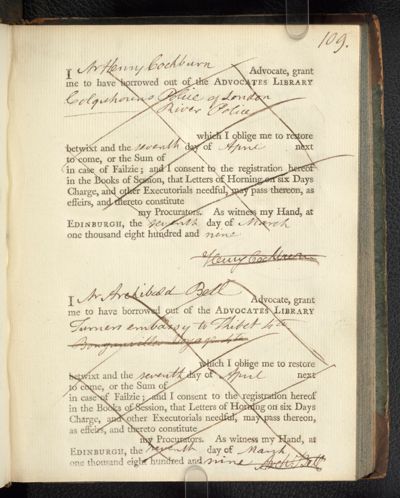 109.
I Mr Henry Cockburn Advocate, grant
me to have borrowed out of the ADVOCATES LIBRARY
Colquhouns Police of London
River Police
which I oblige me to restore
betwixt and the seventh day of April next
to come, or the Sum of
in case of Failzie; and I consent to the registration hereof
in the Books of Session, that Letters of Horning on six Days
Charge, and other Executorials needful, may pass thereon, as
effeirs, and thereto constitute
my Procurators. As witness my Hand, at
EDINBURGH, the seventh day of March
one thousand eight hundred and nine
Henry Cockburn
I Mr Archibald Bell Advocate, grant
me to have borrowed out of the ADVOCATES LIBRARY
Turners embassy to Thibet 4to
Bougainville
which I oblige me to restore
betwixt and the seventh day of April next
to come, or the Sum of
in case of Failzie; and I consent to the registration hereof
in the Books of Session, that Letters of Horning on six Days
Charge, and other Executorials needful, may pass thereon,
as effeirs, and thereto constitute
my Procurators. As witness my Hand, at
EDINBURGH, the seventh day of March
one thousand eight hundred and nine Archd Bell